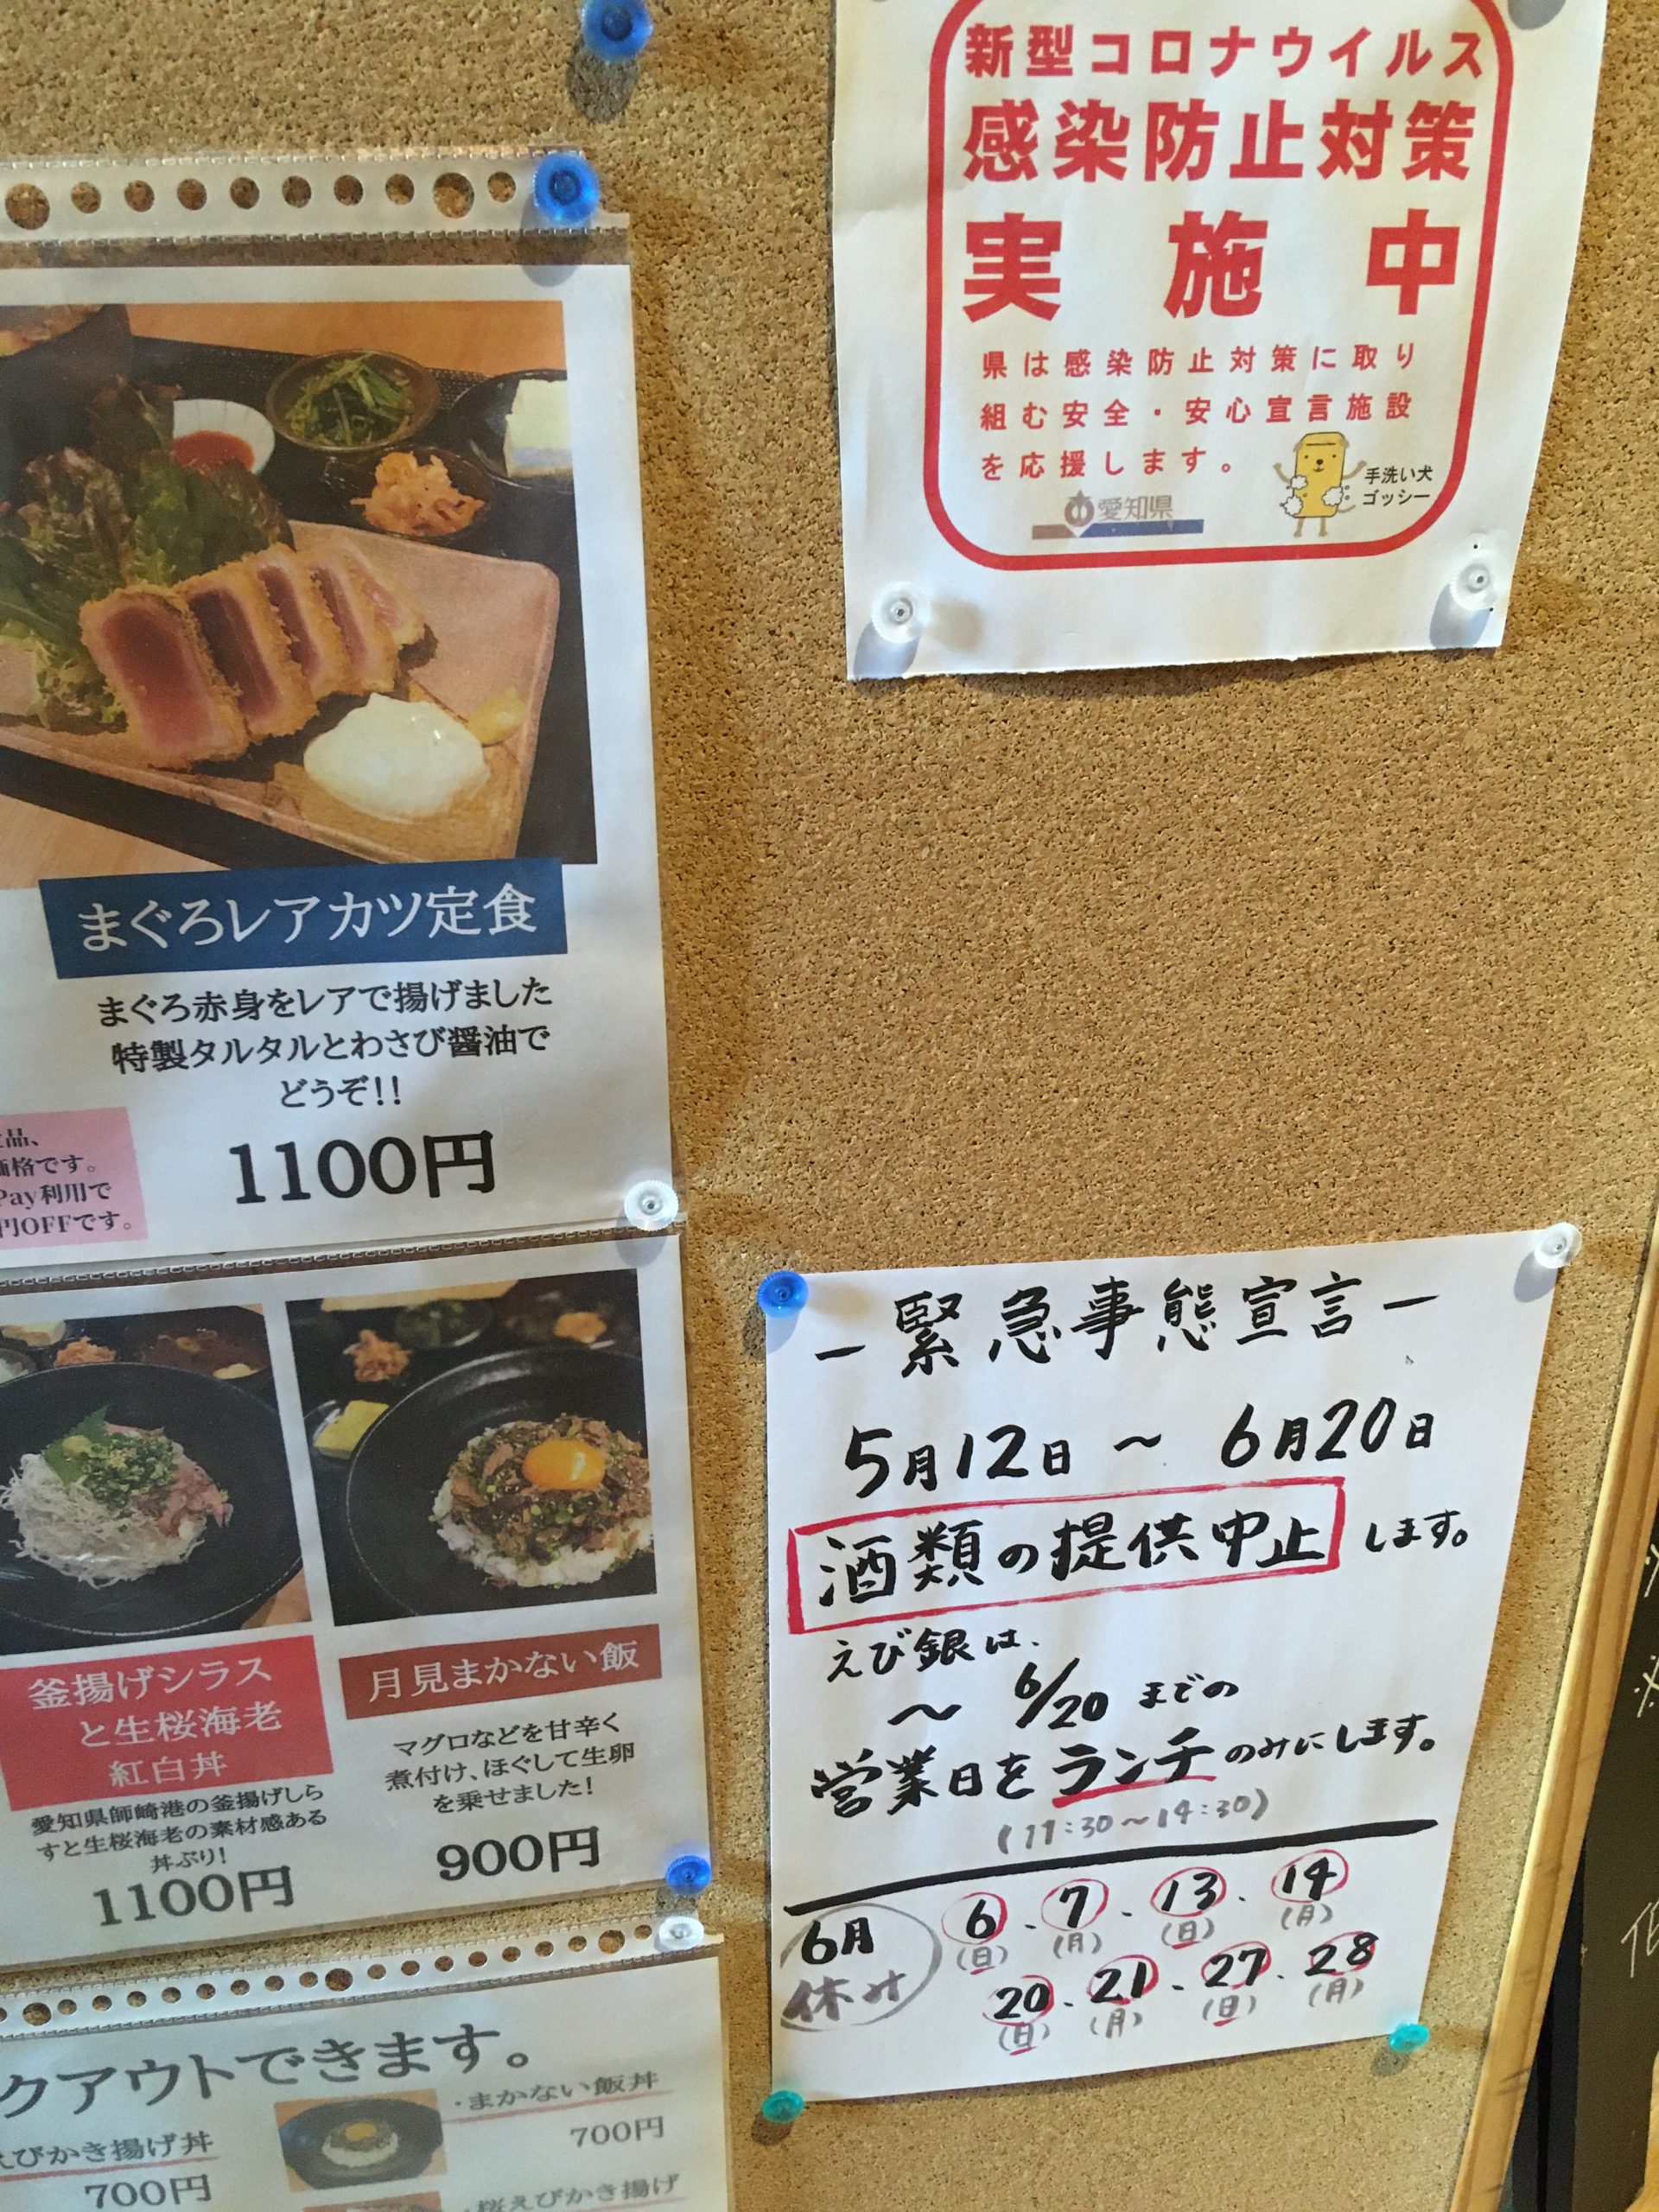 新型コロナウイルス
感染防止対策
実施中
県は感染防止対策に取り
組む安全・安心宣言施設
を応援します。
愛知県
手洗い犬
ゴッシー
まぐろレアカツ定食
まぐろ赤身をレアで揚げました
特製タルタルとわさび醤油で
どうぞ!!
1100円
品、
価格です。
Pay利用で
円OFFです。
釜揚げシラス
と生桜海老
紅白丼
愛知県師崎港の釜揚げしら
すと生桜海老の素材感ある
丼ぶり!
1100円
月見まかない飯
マグロなどを甘辛く
煮付け、ほぐして生卵
を乗せました!
900円
クアウトできます。
えびかき揚げ丼
700円
・まかない飯丼
700円
・桜えびかき揚げ
ー緊急事態宣言ー
5月12日～6月20日
酒類の提供中止します。
えび銀は、
～6/20までの
営業日をランチのみにします。
(11:30～14:30)
6月
休み
6.7.13.14
(日)(月)(日)(月)
20.21.27.28
(日)(月)(日)(月)